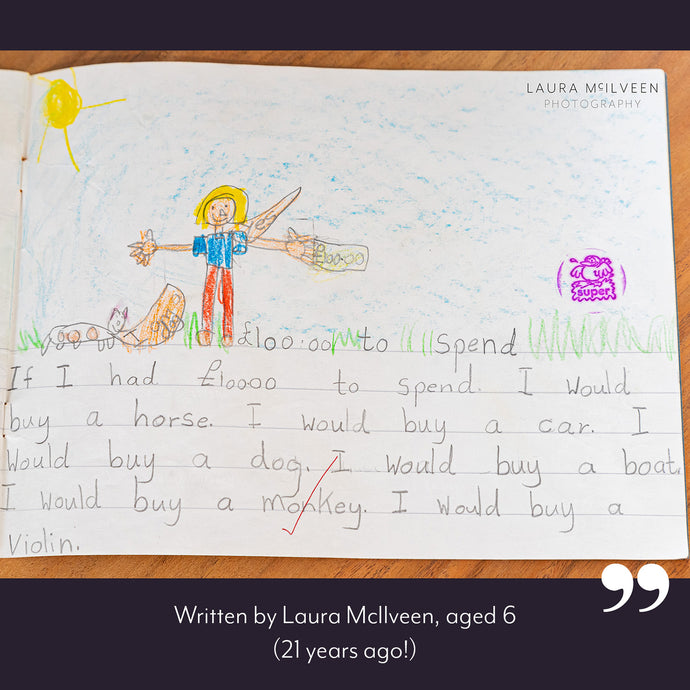 LAURA McILVEEN
PHOTOGRAPHY
£100.00
super
£100.00 to spend
If I had £100.00 to spend. I would
buy a horse. I would buy a car. I
would buy a dog. I would buy a boat.
I would buy a monkey. I would buy a
violin.
”
Written by Laura McIlveen, aged 6
(21 years ago!)